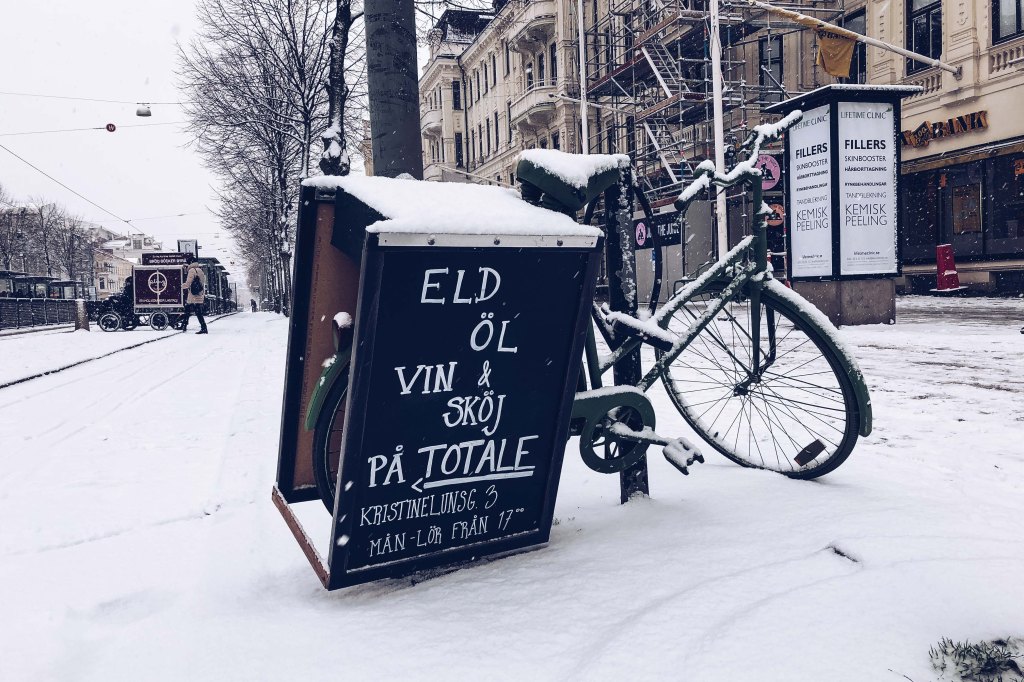 ELD
ÖL
VIN &
SKÖJ
PÅ TOTALE
KRISTINELUNSG. 3
MÅN-LÖR FRÅN 17⁰⁰
LIFETIME CLINIC
FILLERS
SKINBOOSTER
HÅRBORTTAGNING
RYNKBEHANDLINGAR
TANDBLEKNING
KEMISK
PEELING
LIFETIME CLINIC
FILLERS
SKINBOOSTER
HÅRBORTTAGNING
RYNKBEHANDLINGAR
TANDBLEKNING
KEMISK
PEELING
BANK